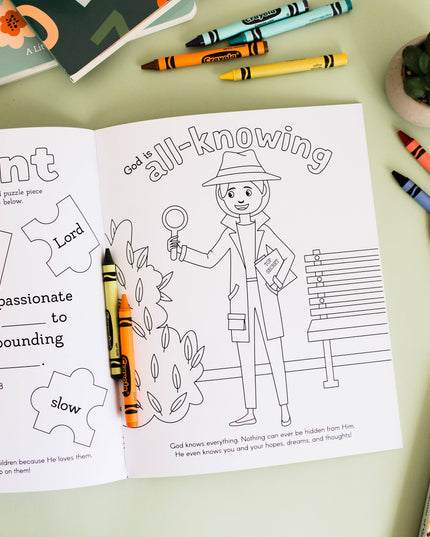 A Lit
Crayola
Crayola
nt
puzzle piece
below.
Lord
passionate
to
ounding
slow
ildren because He loves them
God is
all-knowing
TOP
SECRET
God knows everything. Nothing can ever be hidden from Him.
He even knows you and your hopes, dreams, and thoughts!
Crayola
Crayola